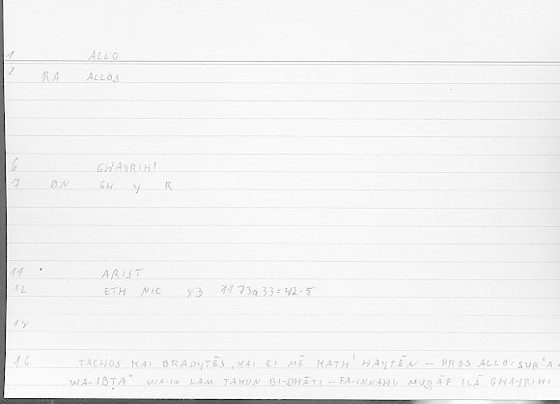 1 ALLO
2 RA ALLOS
6 GHAYRIHI
7 DN GH Y R
11 ARIST
12 ETH NIC 1173a33=42.5
16 TACHOS KAI BRADYTĒS, KAI EI MĒ KATH' HAYTĒN — PROS ALLO:
WA-IN LAM TAKUN BI-DHĀTI — FA-INNAHU MUḌĀF ILĀ GHAYRIHI